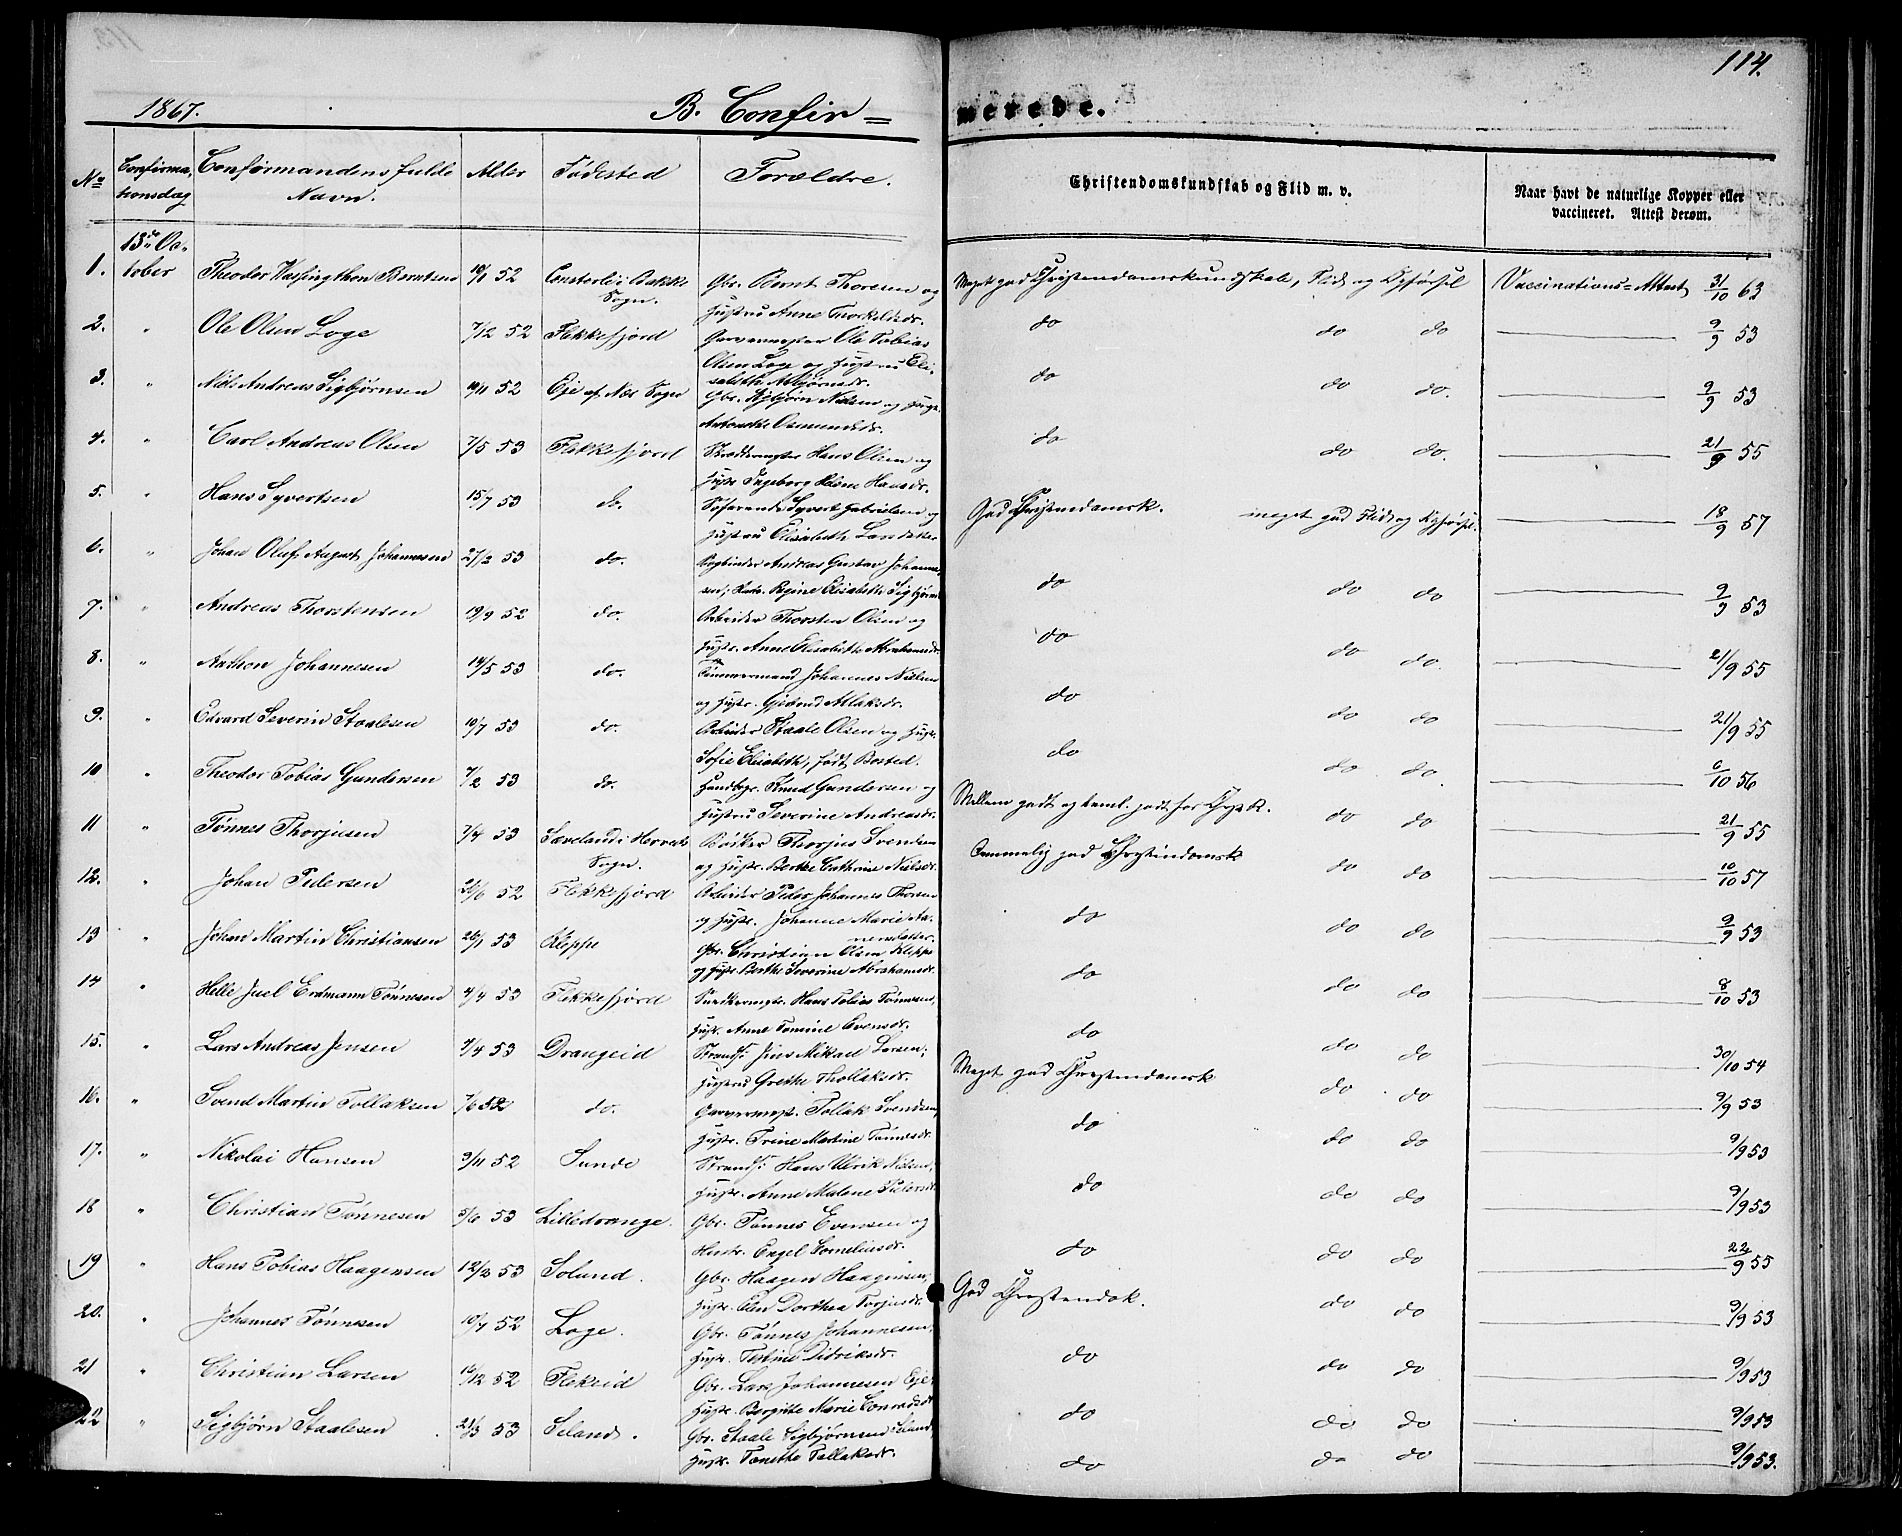 114.
1867. B. Confir= merede.
No Confirmationsdag Confirmandens fulde Navn. Alder Fødested Forældre. Christendomskundskab og Flid m. v. Naar havt de naturlige Kopper eller vaccineret. Attest derom.
13de October
1. Theodor Berntsen 52 Sogn. Gbr. Bernt Thoresen og Hustru Anne Torkelsdr. Meget god Christendomskundskab, Flid og Opførsel Vaccinations=Attest 31/10 63
2. " Ole Olsen Loge 7/12 52 Flekkefjord Garvermester Ole Tobias Olsen Loge og Hustru Elisabeth Asbjørnsdr. do do do 9/9 53
3. " Niels Andreas Sigbjørnsen 19/11 52 Eje af Nes Sogn Gbr. Sigbjørn Nielsen og Hustr. Osmundsdr. do do do. 9/9 53
4. " Carl Andreas Olsen 7/5 53 Flekkefjord Hans Olsen og Hustr. Ingeborg Helene Hansdr. do do do. 21/9 55
5. " Hans Syvertsen 15/7 53 do. Søfarende Syvert Gabrielsen og Hustru Elisabeth God Christendomsk. meget god Flid og Opførsel. 18/9 57
6. " Johan Oluf August Johannesen 27/2 53 do. Bogbinder Andreas Gustav Johannesen, Hustr. Regine Elisabeth Sigbjørnsd. do do do 9/9 53
7. " Andreas Thorstensen 19/9 52 do. Arbeider Thorsten Olsen og Hustr. Anne Elisabeth Abrahamsdr. do do do. 21/9 55
8. " Anthon Johannesen 14/5 53 do. Tømmermand Johannes Nielsen og Hustr. Atlaksdr. do do do 21/9 55
9. " Edvard Severin Staalesen 10/7 53 do. Arbeider Staale Olsen og Hustr. Sofie Elisabeth, født Bosted. do do do. 6/10 56
10 " Theodor Tobias Gundersen 7/2 53 do. Handbgr. Knud Gundersen og Hustru Severine Andreasdr. Mellem godt og teml. godt for do do 21/9 55
11 " Tønnes Thorjusen 7/4 53 Sæveland i Sogn. Bøiker Thorjus Svendsen og Hustr. Berthe Cathrine Nielsdr. Temmelig god Christendomsk do do 10/10 57
12. " Johan Pedersen 26/6 52 Flekkefjord Arbeider Peder Johannes Thorsen og Hustr. Johanne Marie do do do 9/9 53
13 " Johan Martin Christiansen 26/1 53 Kleppe Gbr. Christian Olsen Kleppe og Hustr. Berthe Severine Abrahamsdr. do do do 8/10 53
14 " Helle Juel Erdmann Tønnesen 4/4 53 Flekkefjord Snedkermstr. Hans Tobias Tønnesen, Hustr. Anne Tomine Evensdr. do do do 30/10 54
15. " Lars Andreas Jensen 7/4 53 Drangeid Strands. Jens Mikael Larsen, Hustru Grethe Thollaksdr. Meget god Christendomsk do do 9/9 53
16. " Svend Martin Tollaksen 7/6 52 do. Garvermest. Tollak Svendsen, Hustr. Trine Martine Tønnesdr. do do do 9/9 53
17. " Nikolai Hansen 9/11 52 Sunde Strands. Hans Ulrik Nielsen, Hustr. Anne Malene Pedersdr. do do do 9/9 53
18 " Christian Tønnesen 5/6 53 Lilledrange. Gbr. Tønnes Evensen og Hustr. Engel Corneliusdr. do do do 22/9 55
19 " Hans Tobias Haagensen 12/2 53 Soland. Gbr. Haagen Haagensen, Hustr. Elen Dorthea Torjusdr. God Christendsk. do do 9/9 53
20. " Johannes Tønnesen 10/7 52 Loge. Gbr. Tønnes Johannesen, Hustr. Tostine Didriksdr. do do do 9/9 53
21 " Christian Larsen 14/12 52 Flekeid Gbr. Lars Johannesen Eje, Hustr. Bergitte Marie Conradsdr. do do do 9/9 53
22 " Sigbjørn Staalesen 21/3 53 Seland. Gbr. Staale Sigbjørnsen Seland Hustr. Tonette Tollaksdr. do do do 9/9 53.